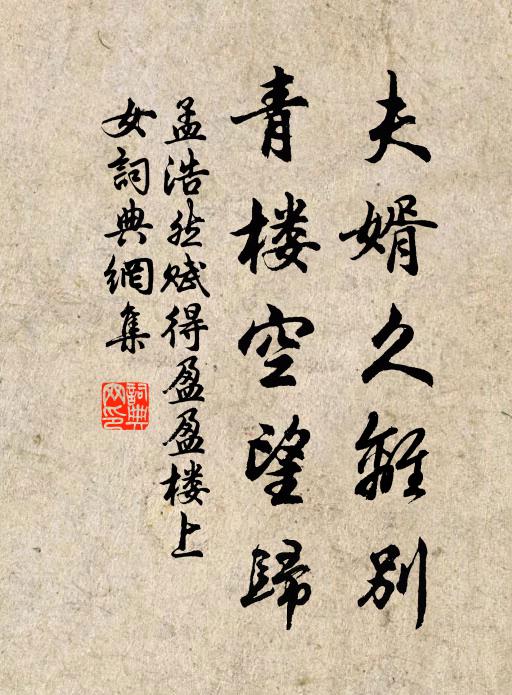 夫婿久離別
青楼空望歸
孟浩然赋得盈盈楼上
女詞典網集
詞典
网印